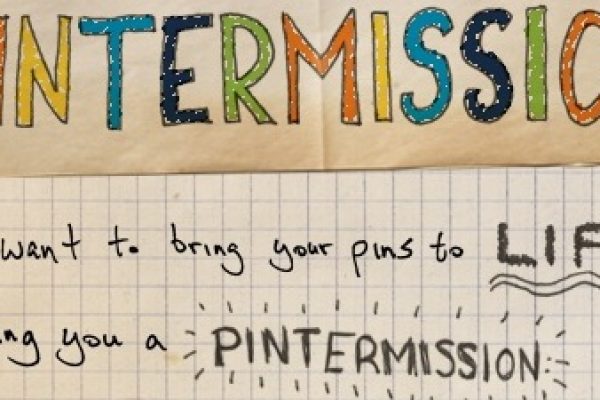 INTERMISSIO
want to bring your pins to LIF
ng you a PINTERMISSION